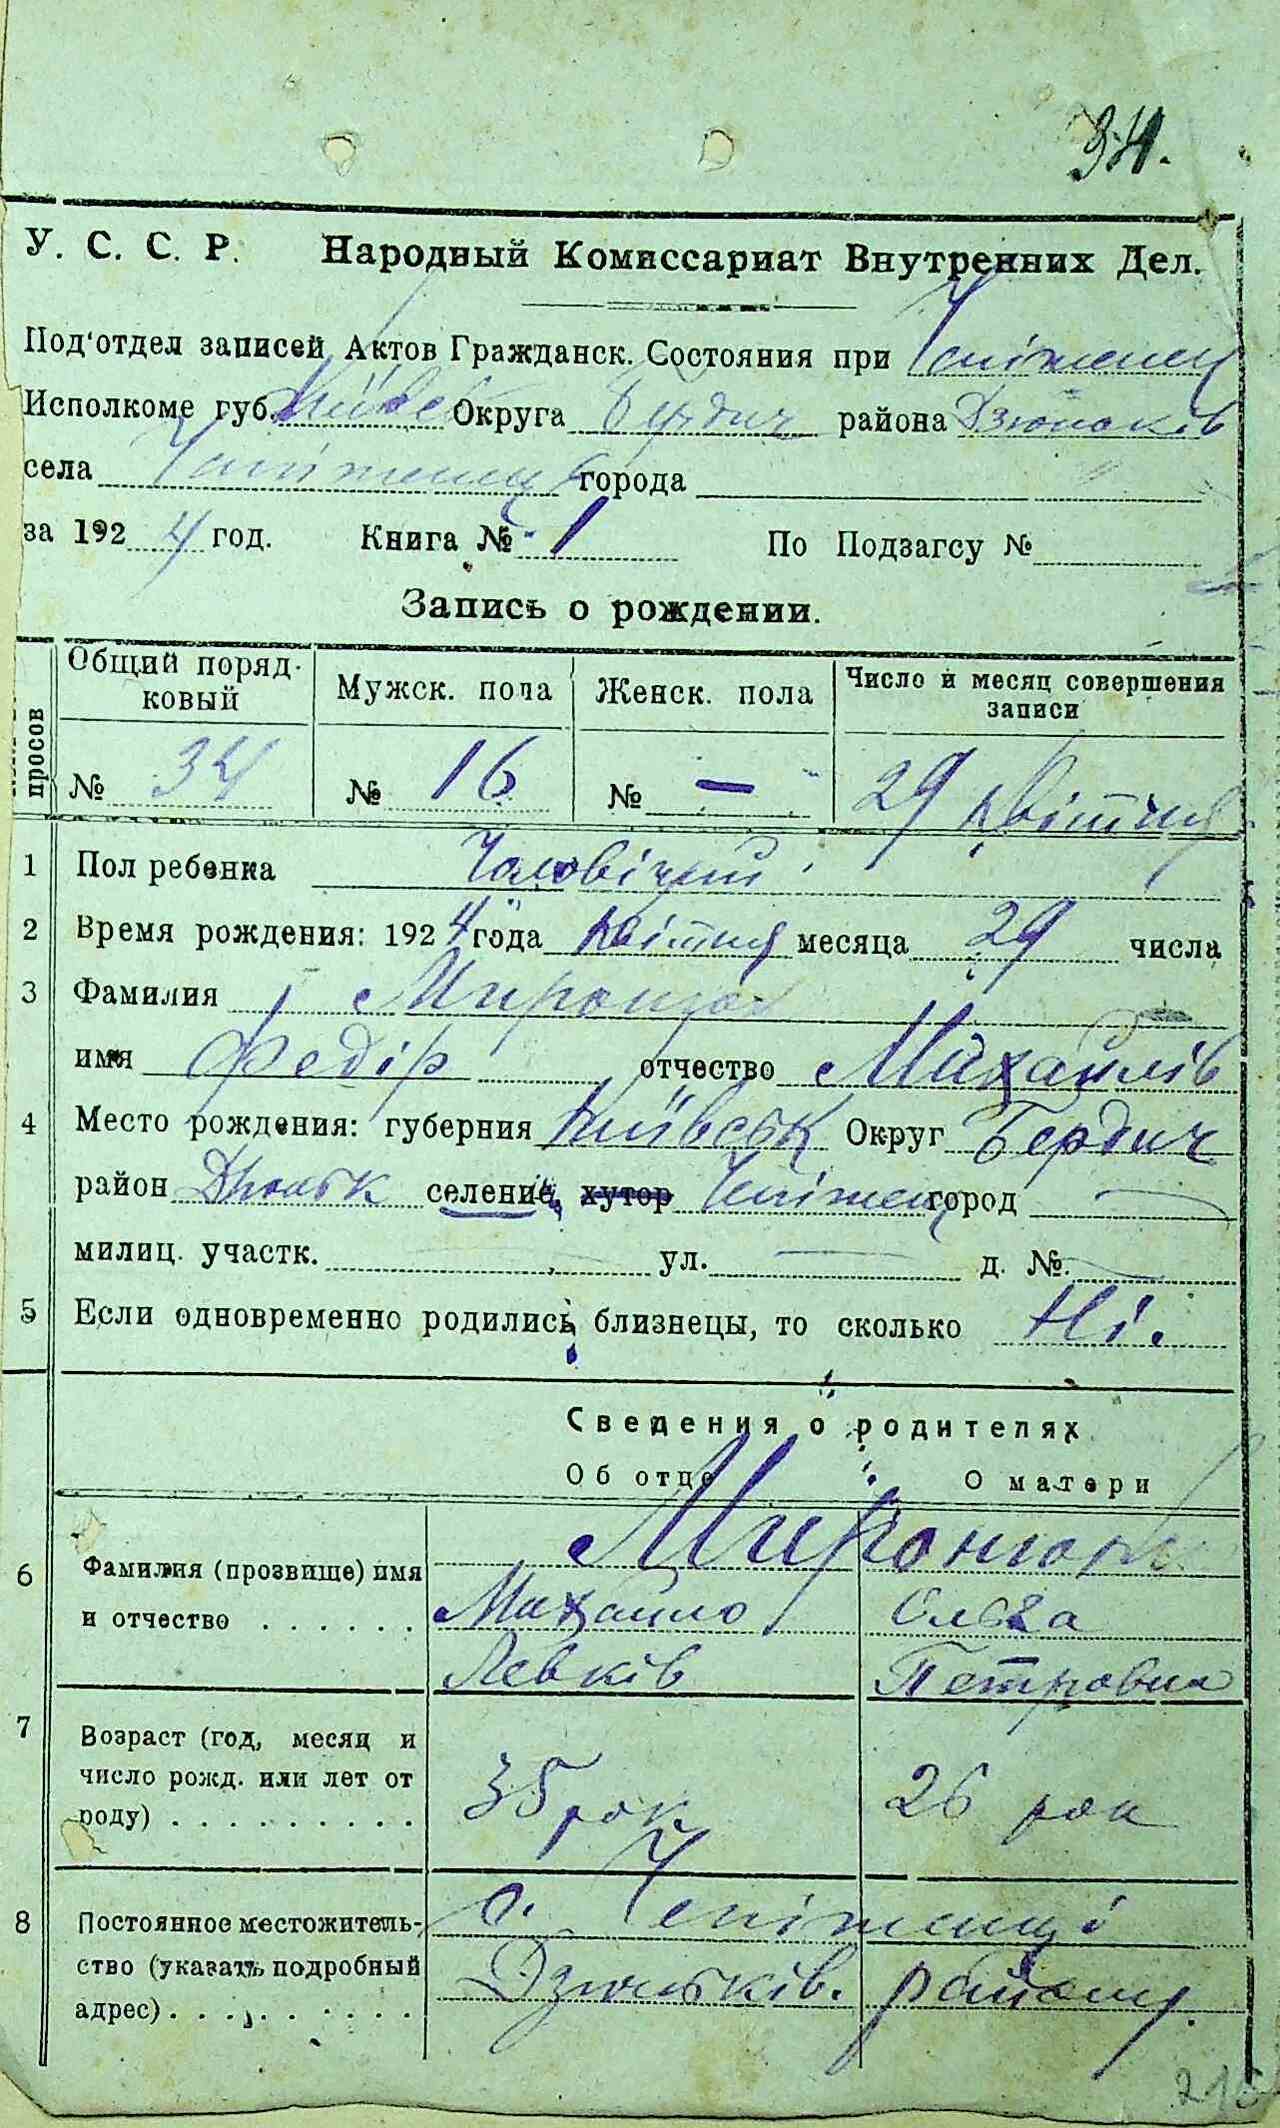 34.
У. С. С. Р. Народный Комиссариат Внутренних Дел.
Под'отдел записей Актов Гражданск. Состояния при
Исполкоме губ. Київськ Округа Бердич района Дзюньків
села города
за 1924 год. Книга № 1 По Подзагсу №
Запись о рождении.
просов
Общий порядковый Мужск. пола Женск. пола Число и месяц совершения записи
№ 34 № 16 № — 29 квітня
1 Пол ребенка Чоловічий
2 Время рождения: 1924 года квітня месяца 29 числа
3 Фамилия
имя Федір отчество Михайлів
4 Место рождения: губерния Київськ Округ Бердич
район селение, хутор город —
милиц. участк. — ул. — д. № —
5 Если одновременно родились близнецы, то сколько Ні.
Сведения о родителях
Об отце О матери
6 Фамилия (прозвище) имя
и отчество . . . . . . Михайло Ольга
Левків Петровна
7 Возраст (год, месяц и
число рожд. или лет от
роду) . . . . . . . . . . 35 рок 26 рок
8 Постоянное местожитель-
ство (указать подробный
адрес) . . . . . . . . . с.
Дзюньків. району.